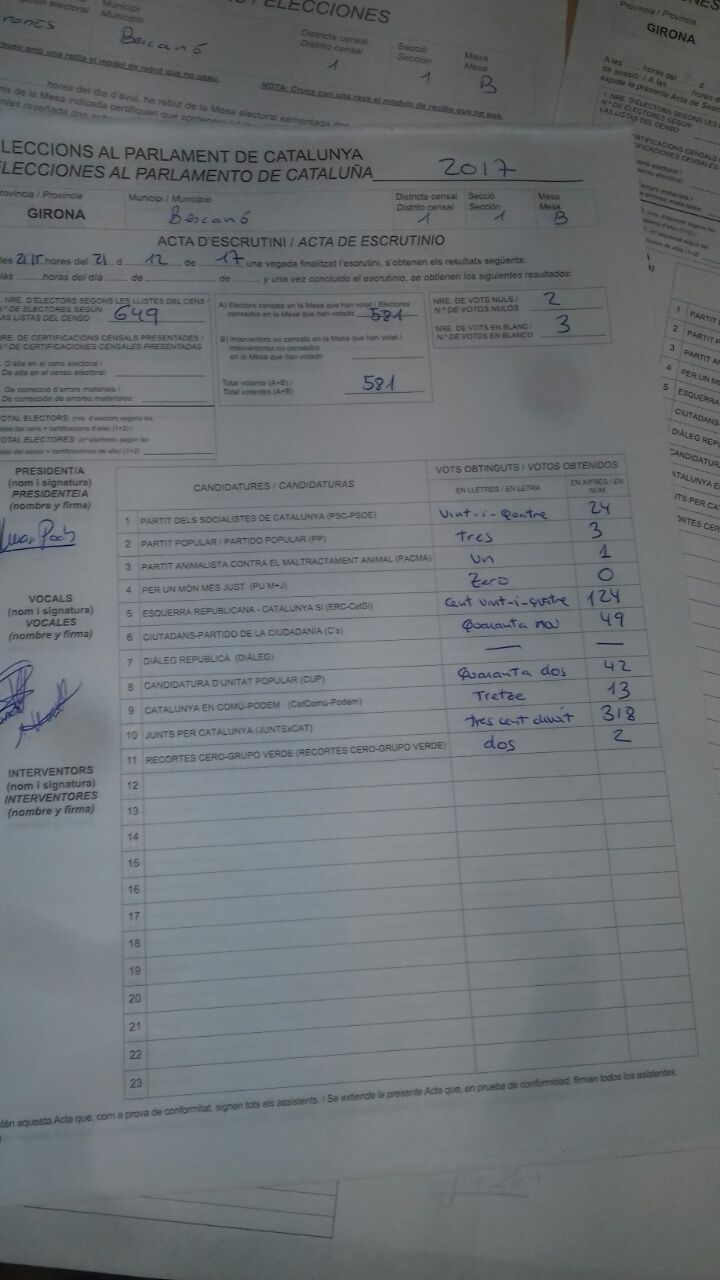 ELECCIONES
Municipi
Municipio
Bescanó
Districte censal
Distrito censal
1
Secció
Sección
1
Mesa
Mesa
B
NOTA: Cruce con una raya el modelo de recibo que no use.
hores del dia d'avui, he rebut de la Mesa electoral esmentada
Província / Provincia
GIRONA
LECCIONS AL PARLAMENT DE CATALUNYA
ELECCIONES AL PARLAMENTO DE CATALUÑA 2017
rovíncia / Provincia
GIRONA
Municipi / Municipio
Bescanó
Districte censal
Distrito censal
1
Secció
Sección
1
Mesa
Mesa
B
ACTA D'ESCRUTINI / ACTA DE ESCRUTINIO
les 21:15 hores del 21 d 12 de 17 una vegada finalitzat l'escrutini, s'obtenen els resultats següents:
las ........ horas del día ..... de ............ de ........, y una vez concluido el escrutinio, se obtienen los siguientes resultados:
NRE. D'ELECTORS SEGONS LES LLISTES DEL CENS /
º DE ELECTORES SEGÚN
AS LISTAS DEL CENSO 649
NRE. DE CERTIFICACIONS CENSALS PRESENTADES /
.º DE CERTIFICACIONES CENSALES PRESENTADAS
. D'alta en el cens electoral /
De alta en el censo electoral:
. De correcció d'errors materials /
De corrección de errores materiales:
OTAL ELECTORS: (nre. d'electors segons les
listes del cens + certificacions d'alta) (1+2) /
OTAL ELECTORES: (nº electores según las
stas del censo + certificaciones de alta) (1+2)
A) Electors censats en la Mesa que han votat / Electores
censados en la Mesa que han votado 581
B) Interventors no censats en la Mesa que han votat /
Interventores no censados
en la Mesa que han votado
Total votants (A+B) /
Total votantes (A+B) 581
NRE. DE VOTS NULS /
N.º DE VOTOS NULOS 2
NRE. DE VOTS EN BLANC /
N.º DE VOTOS EN BLANCO 3
PRESIDENT/A
(nom i signatura)
PRESIDENTE/A
(nombre y firma)
VOCALS
(nom i signatura)
VOCALES
(nombre y firma)
INTERVENTORS
(nom i signatura)
INTERVENTORES
(nombre y firma)
CANDIDATURES / CANDIDATURAS
VOTS OBTINGUTS / VOTOS OBTENIDOS
EN LLETRES / EN LETRA
EN XIFRES / EN NÚM.
1 PARTIT DELS SOCIALISTES DE CATALUNYA (PSC-PSOE) Vint-i-quatre 24
2 PARTIT POPULAR / PARTIDO POPULAR (PP) tres 3
3 PARTIT ANIMALISTA CONTRA EL MALTRACTAMENT ANIMAL (PACMA) un 1
4 PER UN MÓN MÉS JUST (PU M+J) Zero 0
5 ESQUERRA REPUBLICANA - CATALUNYA SÍ (ERC-CatSí) Cent vint-i-quatre 124
6 CIUTADANS-PARTIDO DE LA CIUDADANÍA (C's) Quaranta nou 49
7 DIÀLEG REPUBLICÀ (DIÀLEG) — —
8 CANDIDATURA D'UNITAT POPULAR (CUP) Quaranta dos 42
9 CATALUNYA EN COMÚ-PODEM (CatComú-Podem) Tretze 13
10 JUNTS PER CATALUNYA (JUNTSxCAT) tres cent divuit 318
11 RECORTES CERO-GRUPO VERDE (RECORTES CERO-GRUPO VERDE) dos 2
12
13
14
15
16
17
18
19
20
21
22
23
tén aquesta Acta que, com a prova de conformitat, signen tots els assistents. / Se extiende la presente Acta que, en prueba de conformidad, firman todos los asistentes